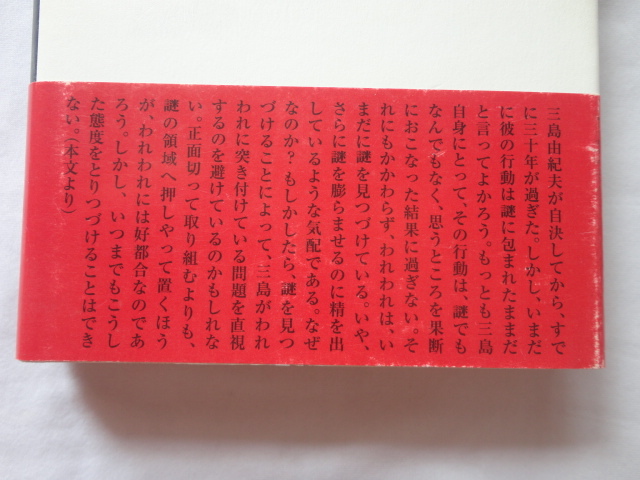 三島由紀夫が自決してから、すで
に三十年が過ぎた。しかし、いまだ
に彼の行動は謎に包まれたままだ
と言ってよかろう。もっとも三島
自身にとって、その行動は、謎でも
なんでもなく、思うところを果断
におこなった結果に過ぎない。そ
れにもかかわらず、われわれは、い
まだに謎を見つづけている。いや、
さらに謎を膨らませるのに精を出
しているような気配である。なぜ
なのか?もしかしたら、謎を見つ
づけることによって、三島がわれ
われに突き付けている問題を直視
するのを避けているのかもしれな
い。正面切って取り組むよりも、
謎の領域へ押しやって置くほう
が、われわれには好都合なのであ
ろう。しかし、いつまでもこうし
た態度をとりつづけることはでき
ない。(本文より)